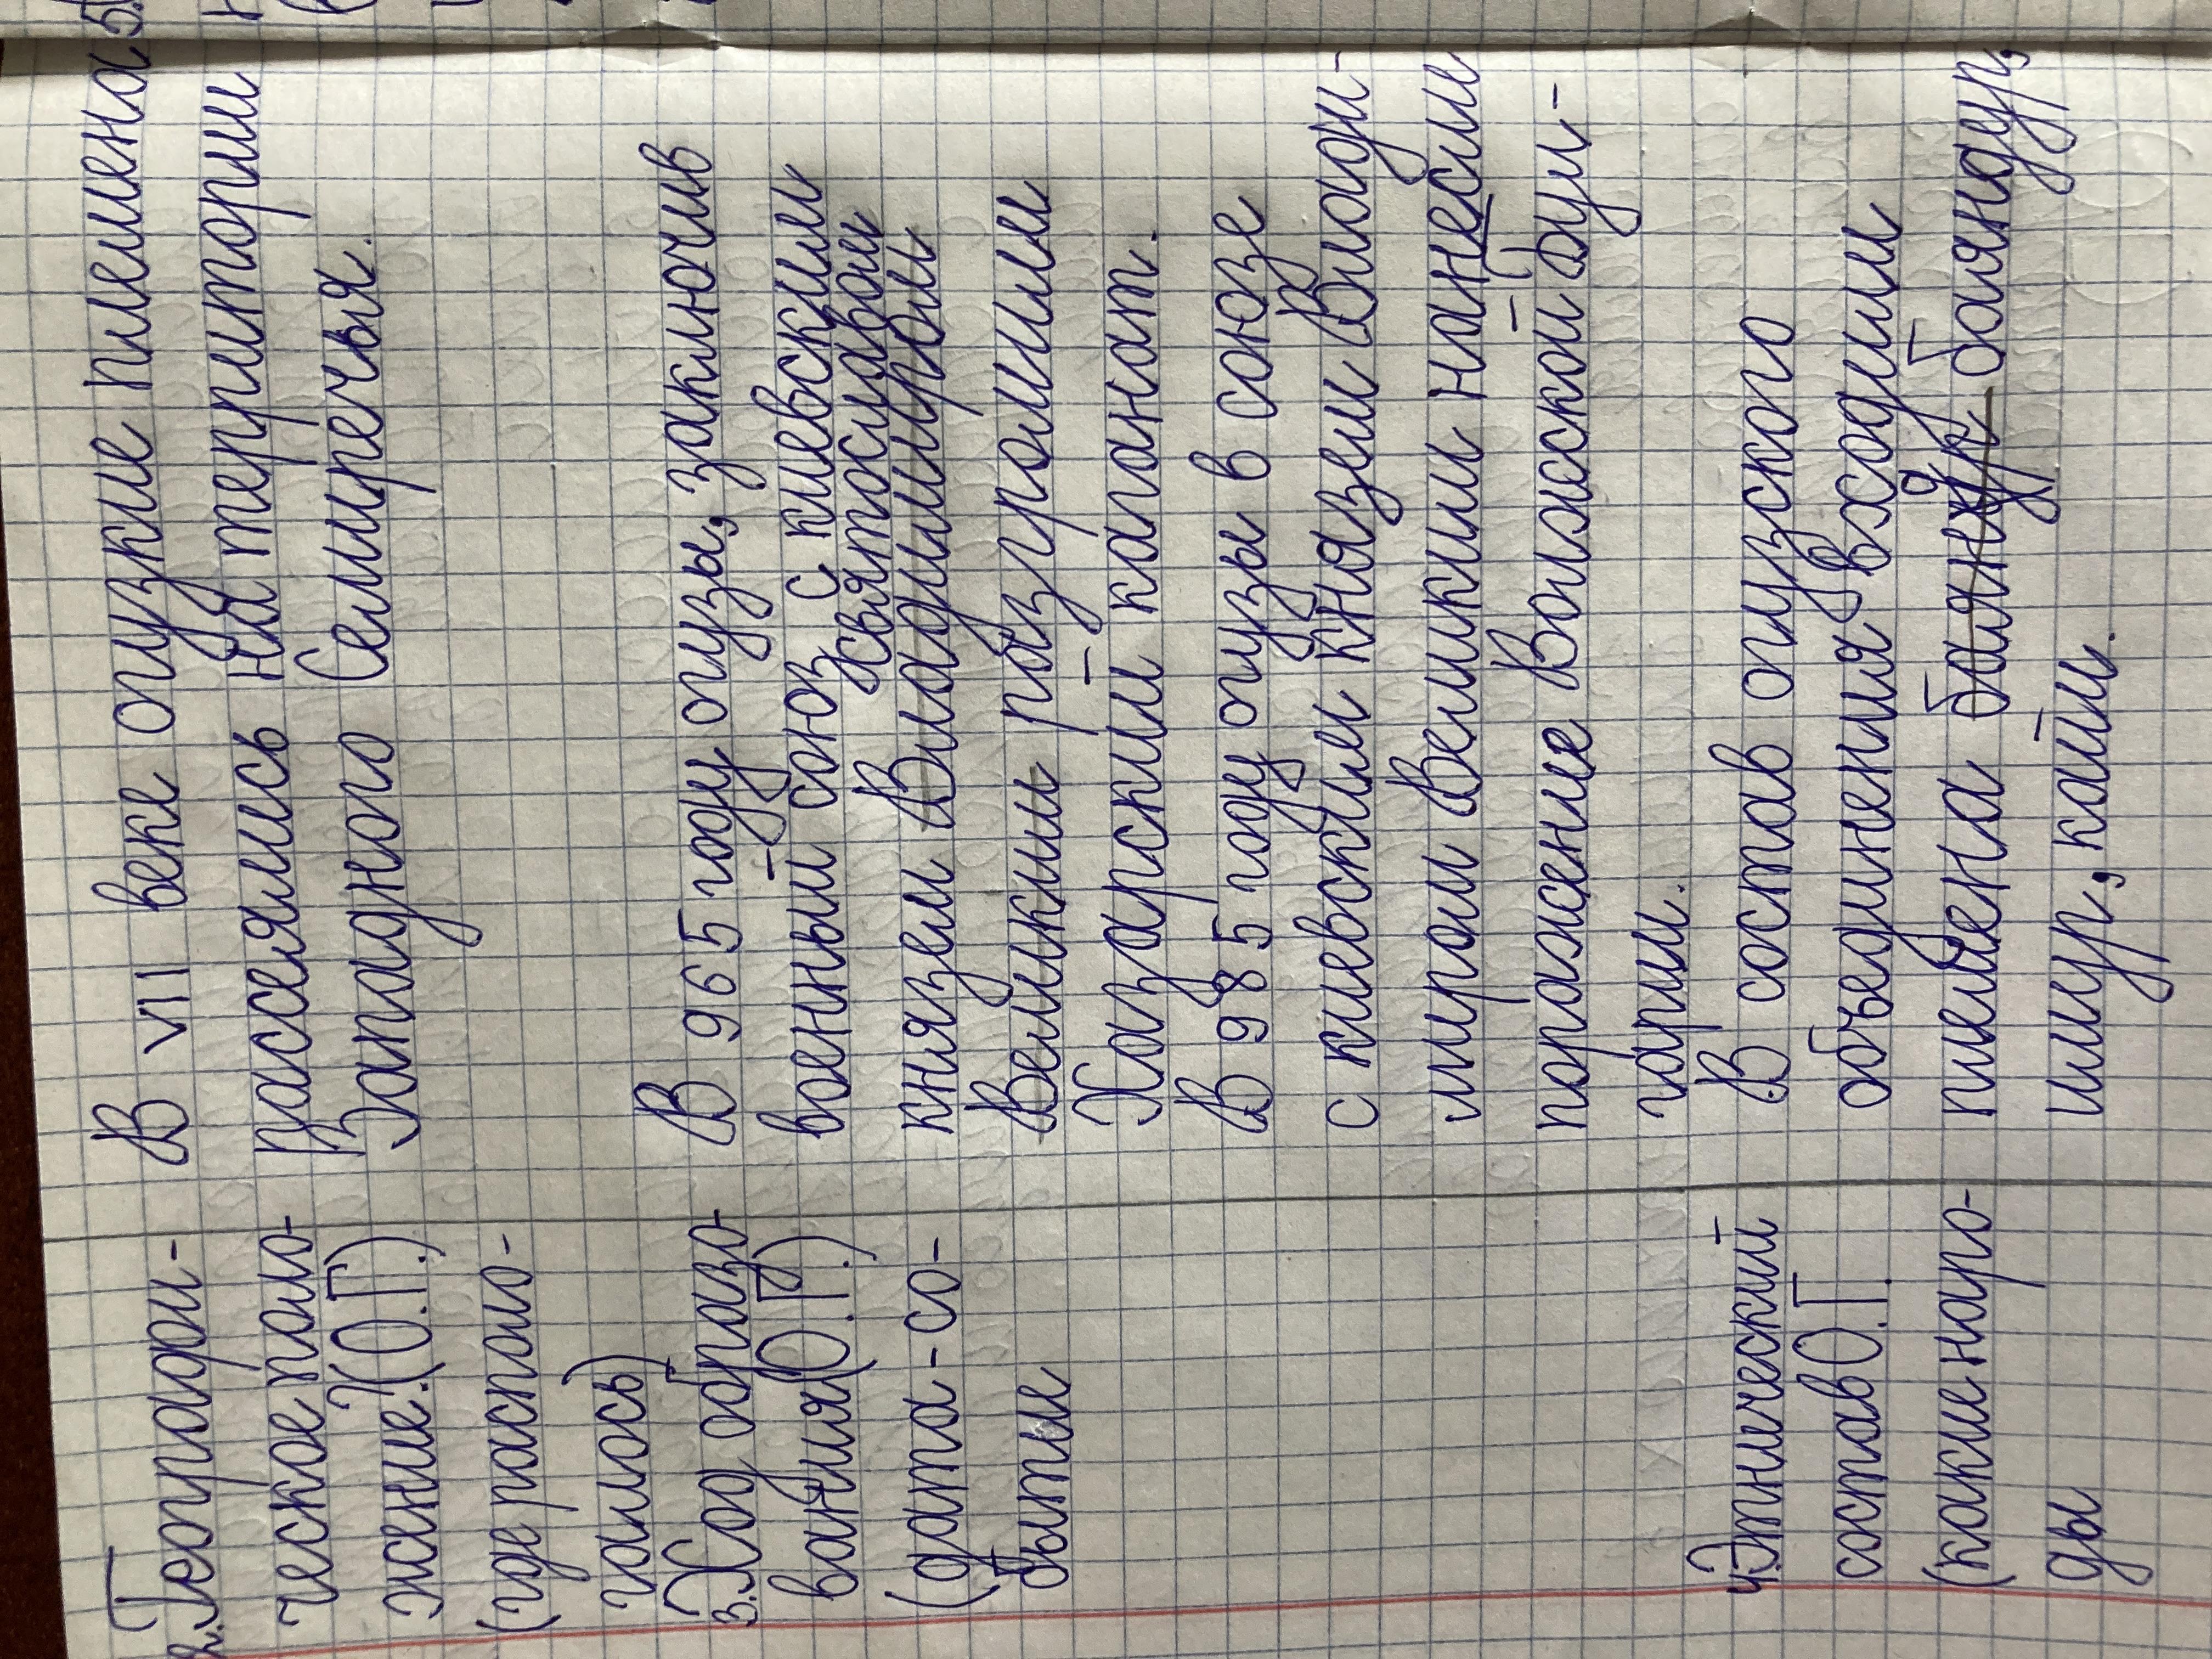 2. Геогра­фи-
ческое поло-
жение.(О.Г.)
(где распо­ло-
галось)
В VII веке огузкие племена
расселялись на территории
Западного Семиречья.
3. Ход образо-
вания(О.Г.)
(дата - со-
бытие
В 965 году огузы, заключив
военный союз с киевским
святославом
князем Владимиром
Великим разгромили
Хазарский каганат.
В 985 году огузы в союзе
с киевским князем Влади-
миром Великим нанесли
поражение Волжской Бул-
гарии.
4. Этнический
состав О.Г.
(какие наро-
ды
В состав огузского
объединения входили
племена баяндур,
имур, кайи.